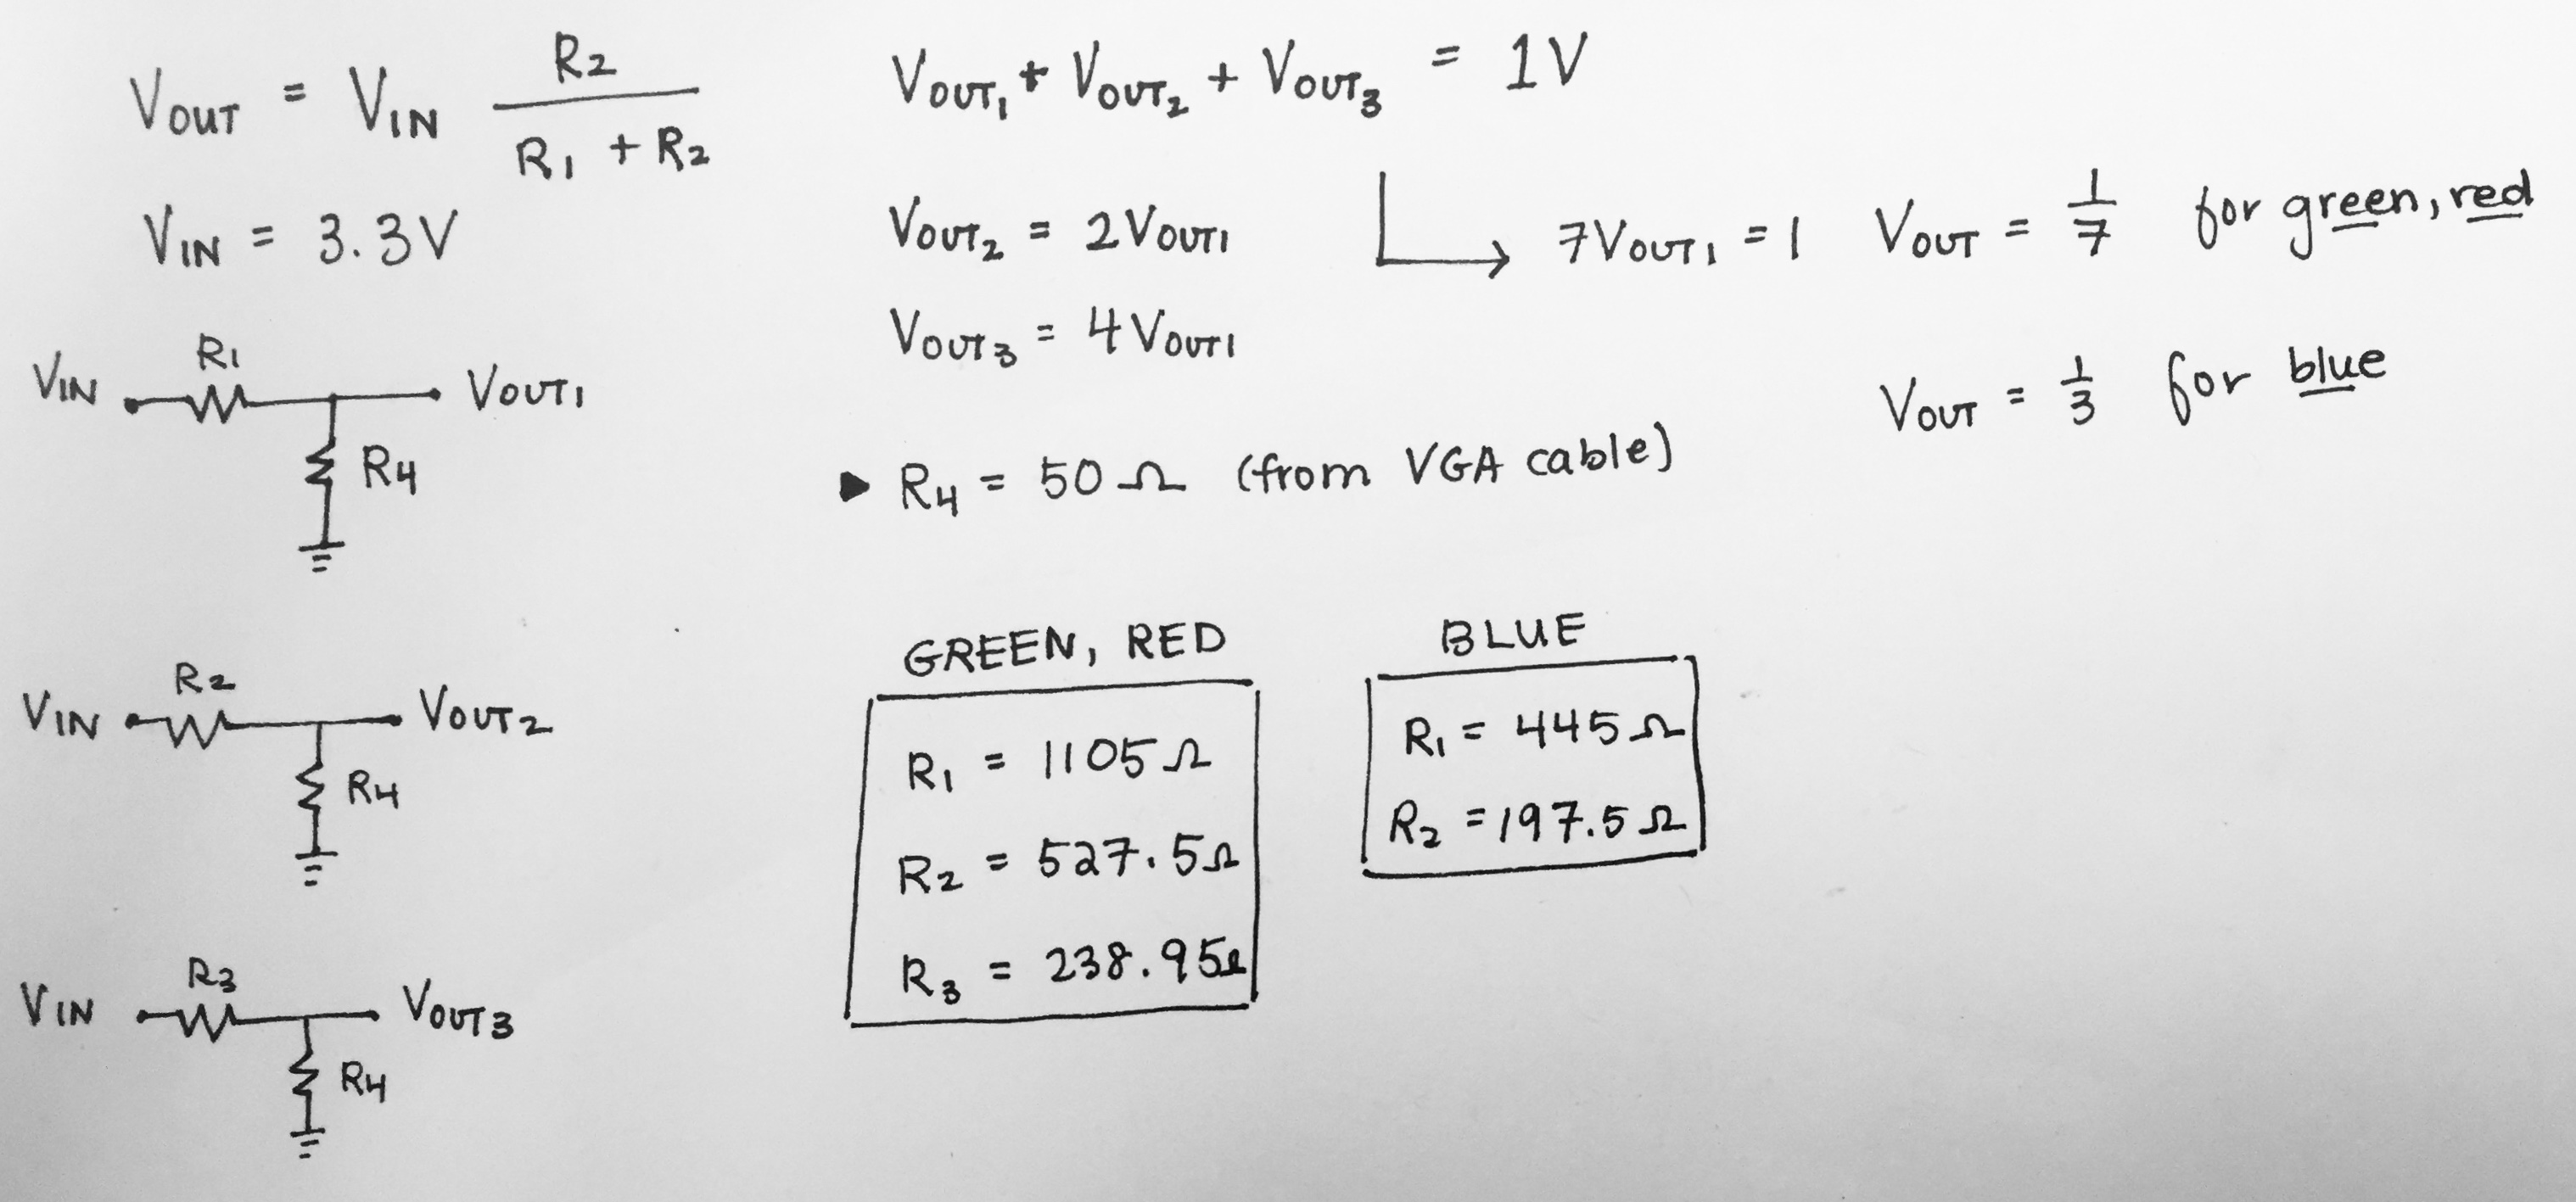 VOUT = VIN R2 / R1 + R2
VIN = 3.3V
VIN R1 VOUT1
R4
VIN R2 VOUT2
R4
VIN R3 VOUT3
R4
VOUT1 + VOUT2 + VOUT3 = 1V
VOUT2 = 2VOUT1
7VOUT1 = 1
VOUT3 = 4VOUT1
VOUT = 1/7 for green, red
VOUT = 1/3 for blue
▶ R4 = 50Ω (from VGA cable)
GREEN, RED
R1 = 1105Ω
R2 = 527.5Ω
R3 = 238.95Ω
BLUE
R1 = 445Ω
R2 = 197.5Ω